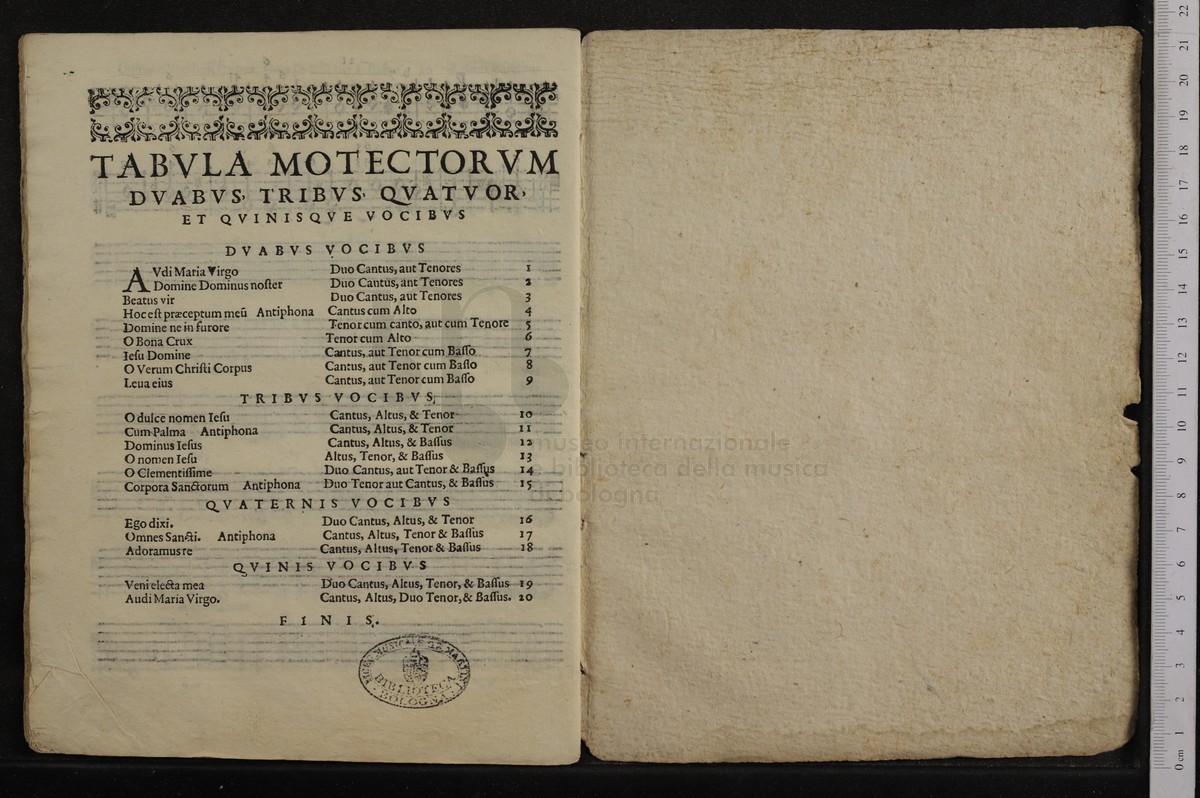 TABVLA MOTECTORVM
DVABVS, TRIBVS, QVATVOR,
ET QVINISQVE VOCIBVS
DVABVS VOCIBVS
AVdi Maria Virgo Duo Cantus, aut Tenores 1
Domine Dominus noſter Duo Cantus, aut Tenores 2
Beatus vir Duo Cantus, aut Tenores 3
Hoc eſt præceptum meũ Antiphona Cantus cum Alto 4
Domine ne in furore Tenor cum canto, aut cum Tenore 5
O Bona Crux Tenor cum Alto 6
Ieſu Domine Cantus, aut Tenor cum Baſſo 7
O Verum Chriſti Corpus Cantus, aut Tenor cum Baſſo 8
Leua eius Cantus, aut Tenor cum Baſſo 9
TRIBVS VOCIBVS,
O dulce nomen Ieſu Cantus, Altus, & Tenor 10
Cum Palma Antiphona Cantus, Altus, & Tenor 11
Dominus Ieſus Cantus, Altus, & Baſſus 12
O nomen Ieſu Altus, Tenor, & Baſſus 13
O Clementiſſime Duo Cantus, aut Tenor & Baſſus 14
Corpora Sanctorum Antiphona Duo Tenor aut Cantus, & Baſſus 15
QVATERNIS VOCIBVS
Ego dixi. Duo Cantus, Altus, & Tenor 16
Omnes Sancti. Antiphona Cantus, Altus, Tenor & Baſſus 17
Adoramus te Cantus, Altus, Tenor & Baſſus 18
QVINIS VOCIBVS
Veni electa mea Duo Cantus, Altus, Tenor, & Baſſus 19
Audi Maria Virgo. Cantus, Altus, Duo Tenor, & Baſſus. 20
FINIS.
BIBLIOTECA
BOLOGNA
museo internazionale
e biblioteca della musica
di bologna
22
21
20
19
18
17
16
15
14
13
12
11
10
9
8
7
6
5
4
3
2
1
0 cm